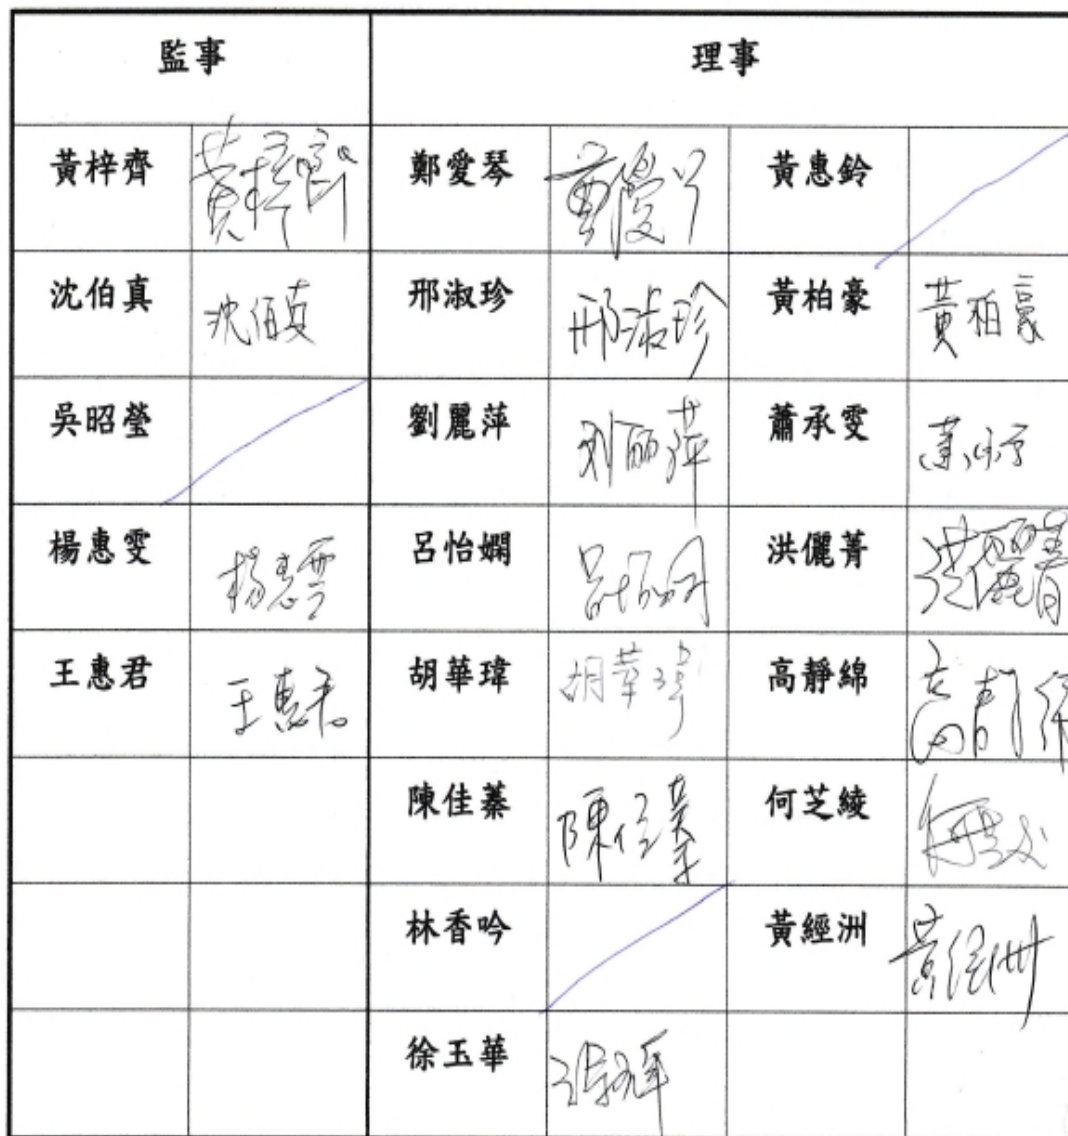 監事 理事
黃梓齊 黃梓齊 鄭愛琴 鄭愛琴 黃惠鈴
沈伯真 沈伯真 邢淑珍 邢淑珍 黃柏豪 黃柏豪
吳昭瑩 劉麗萍 刘丽萍 蕭承雯
楊惠雯 楊惠雯 呂怡嫻 呂怡嫻 洪儷菁 洪儷菁
王惠君 王惠君 胡華瑋 胡華瑋 高靜綿
陳佳蓁 陳佳蓁 何芝綾 何芝綾
林香吟 黃經洲 黃經洲
徐玉華